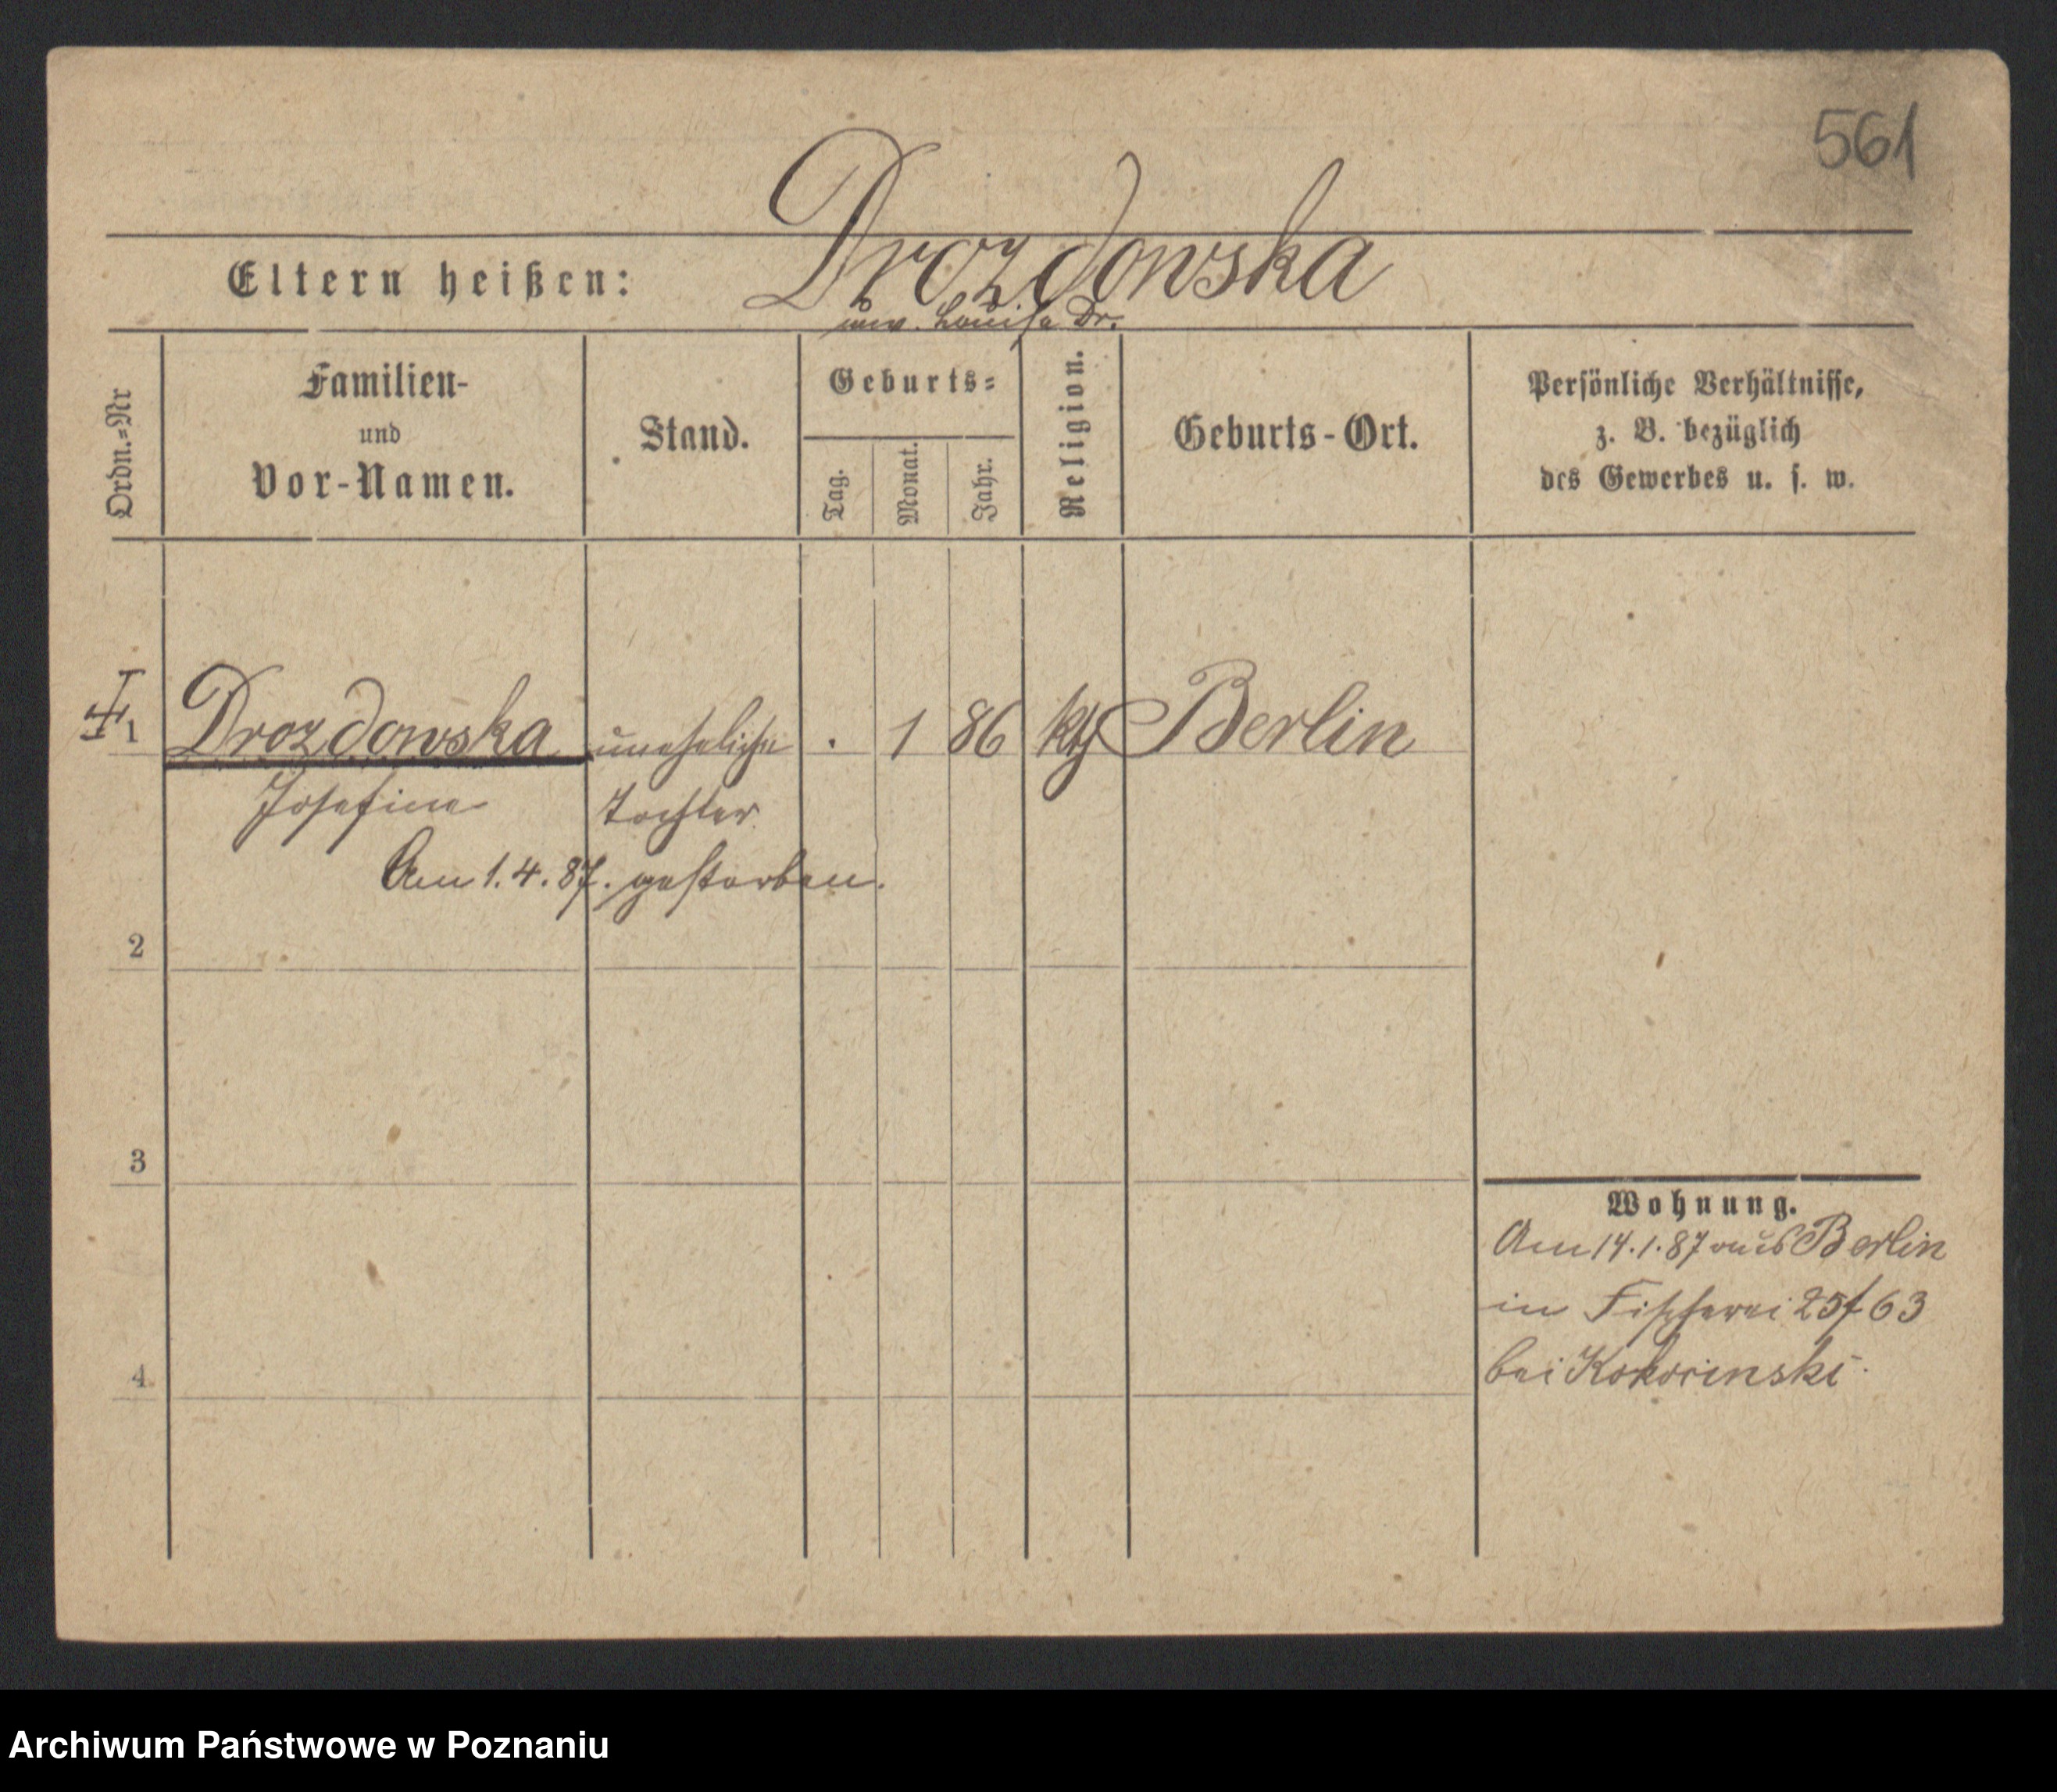 561
Drozdowska
Eltern heißen:
unv. Louise Dr.
Ordn.=Nr
Familien-
und
Vor-Namen.
Stand.
Geburts=
Tag.
Monat.
Jahr.
Religion.
Geburts-Ort.
Persönliche Verhältnisse,
z. B. bezüglich
des Gewerbes u. s. w.
1 Drozdowska uneheliche . 1 86 kth Berlin
Josefine Tochter
Am 1.4.87. gestorben.
2
3
Wohnung.
Am 14.1.87 aus Berlin
in Fischerei 25f 63
4 bei Kokorinski.
Archiwum Państwowe w Poznaniu